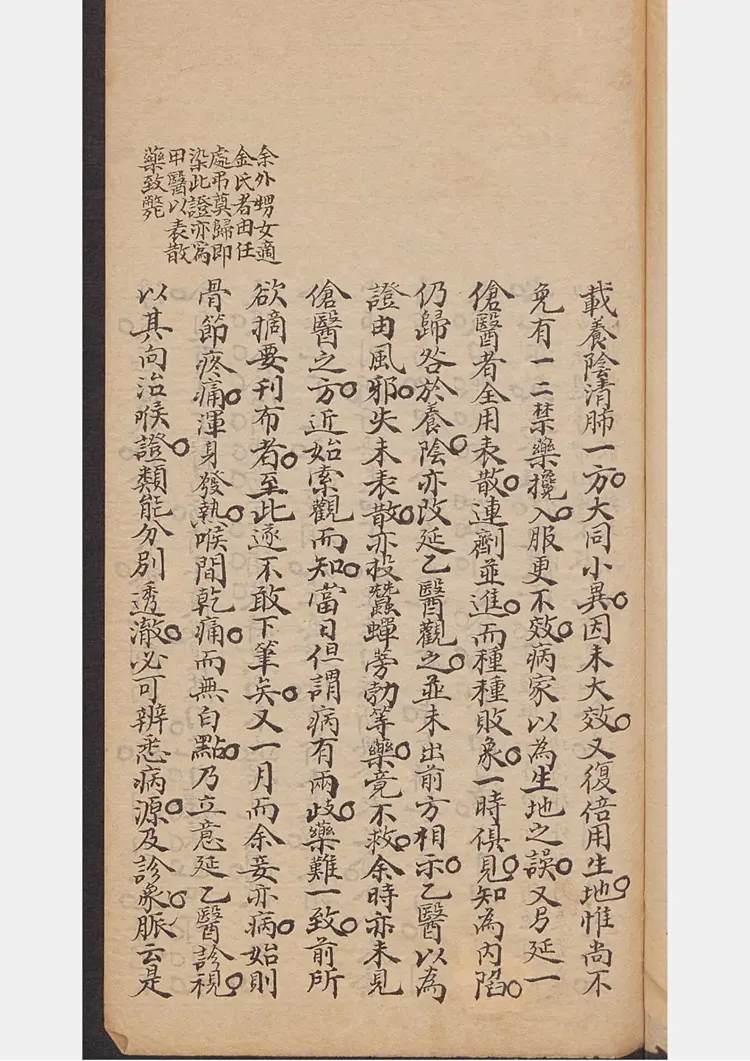 載養陰清肺一方。大同小異。因未大效。又復倍用生地。惟尚不
免有一二禁藥攙入。服更不效。病家以為生地之誤。又另延一
傖醫者全用表散。連劑並進。而種種敗象。一時俱見。知為內陷。
仍歸咎於養陰。亦改延乙醫觀之。並未出前方相示。乙醫以為
證由風邪。失未表散。亦投蠶蟬蒡勃等藥。竟不救。余時亦未見
傖醫之方。近始索觀而知。當日但謂病有兩歧。藥難一致。前所
欲摘要刊布者。至此遂不敢下筆矣。又一月而余妾亦病。始則
骨節疼痛。渾身發熱。喉間乾痛。而無白點。乃立意延乙醫診視。
以其向治喉證。類能分別透澈。必可辨悉病源。及診象脈云是
余外甥女適
金氏者由任
處弔奠歸即
染此證亦為
甲醫以表散
藥致斃